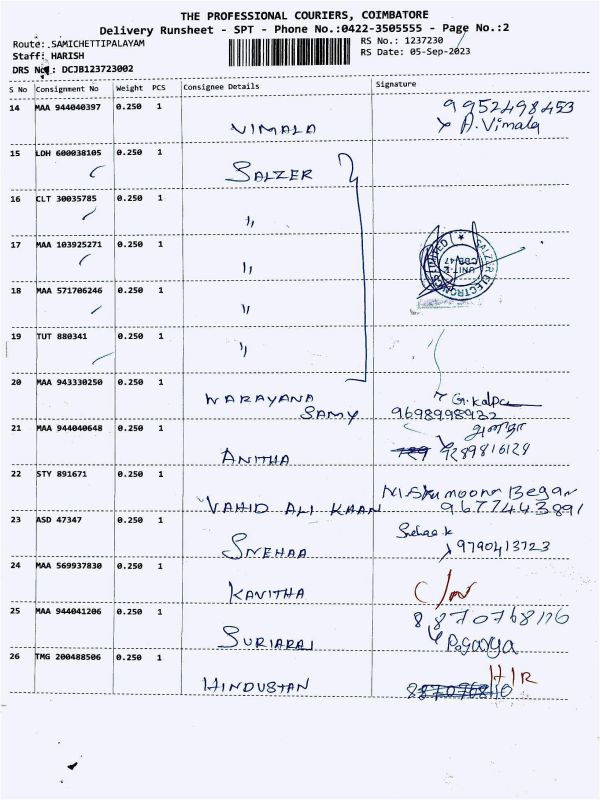 THE PROFESSIONAL COURIERS, COIMBATORE
Delivery Runsheet - SPT - Phone No.:0422-3505555 - Page No.:2
Route: SAMICHETTIPALAYAM RS No.: 1237230
Staff: HARISH RS Date: 05-Sep-2023
DRS No.: DCJB123723002
S No Consignment No Weight PCS Consignee Details Signature
14 MAA 944040397 0.250 1 VIMALA 9952498453
A. Vimala
15 LDH 600038105 0.250 1 SALZER
16 CLT 30035785 0.250 1 〃
17 MAA 103925271 0.250 1 〃 SALZER ELECTRONICS LIMITED UNIT-I CBE-47
18 MAA 571706246 0.250 1 〃
19 TUT 880341 0.250 1 〃
20 MAA 943330250 0.250 1 NARAYANA SAMY G. Kalpa
9698998932
21 MAA 944040648 0.250 1 ANITHA
9289816129
22 STY 891671 0.250 1 VAHID ALI KAAN Began
9677443891
23 ASD 47347 0.250 1 SNEHAA Snehaa.k
9790413723
24 MAA 569937830 0.250 1 KAVITHA C/N
25 MAA 944041206 0.250 1 SURIARAJ 8870768116
26 TMG 200488506 0.250 1 HINDUSTAN H/R